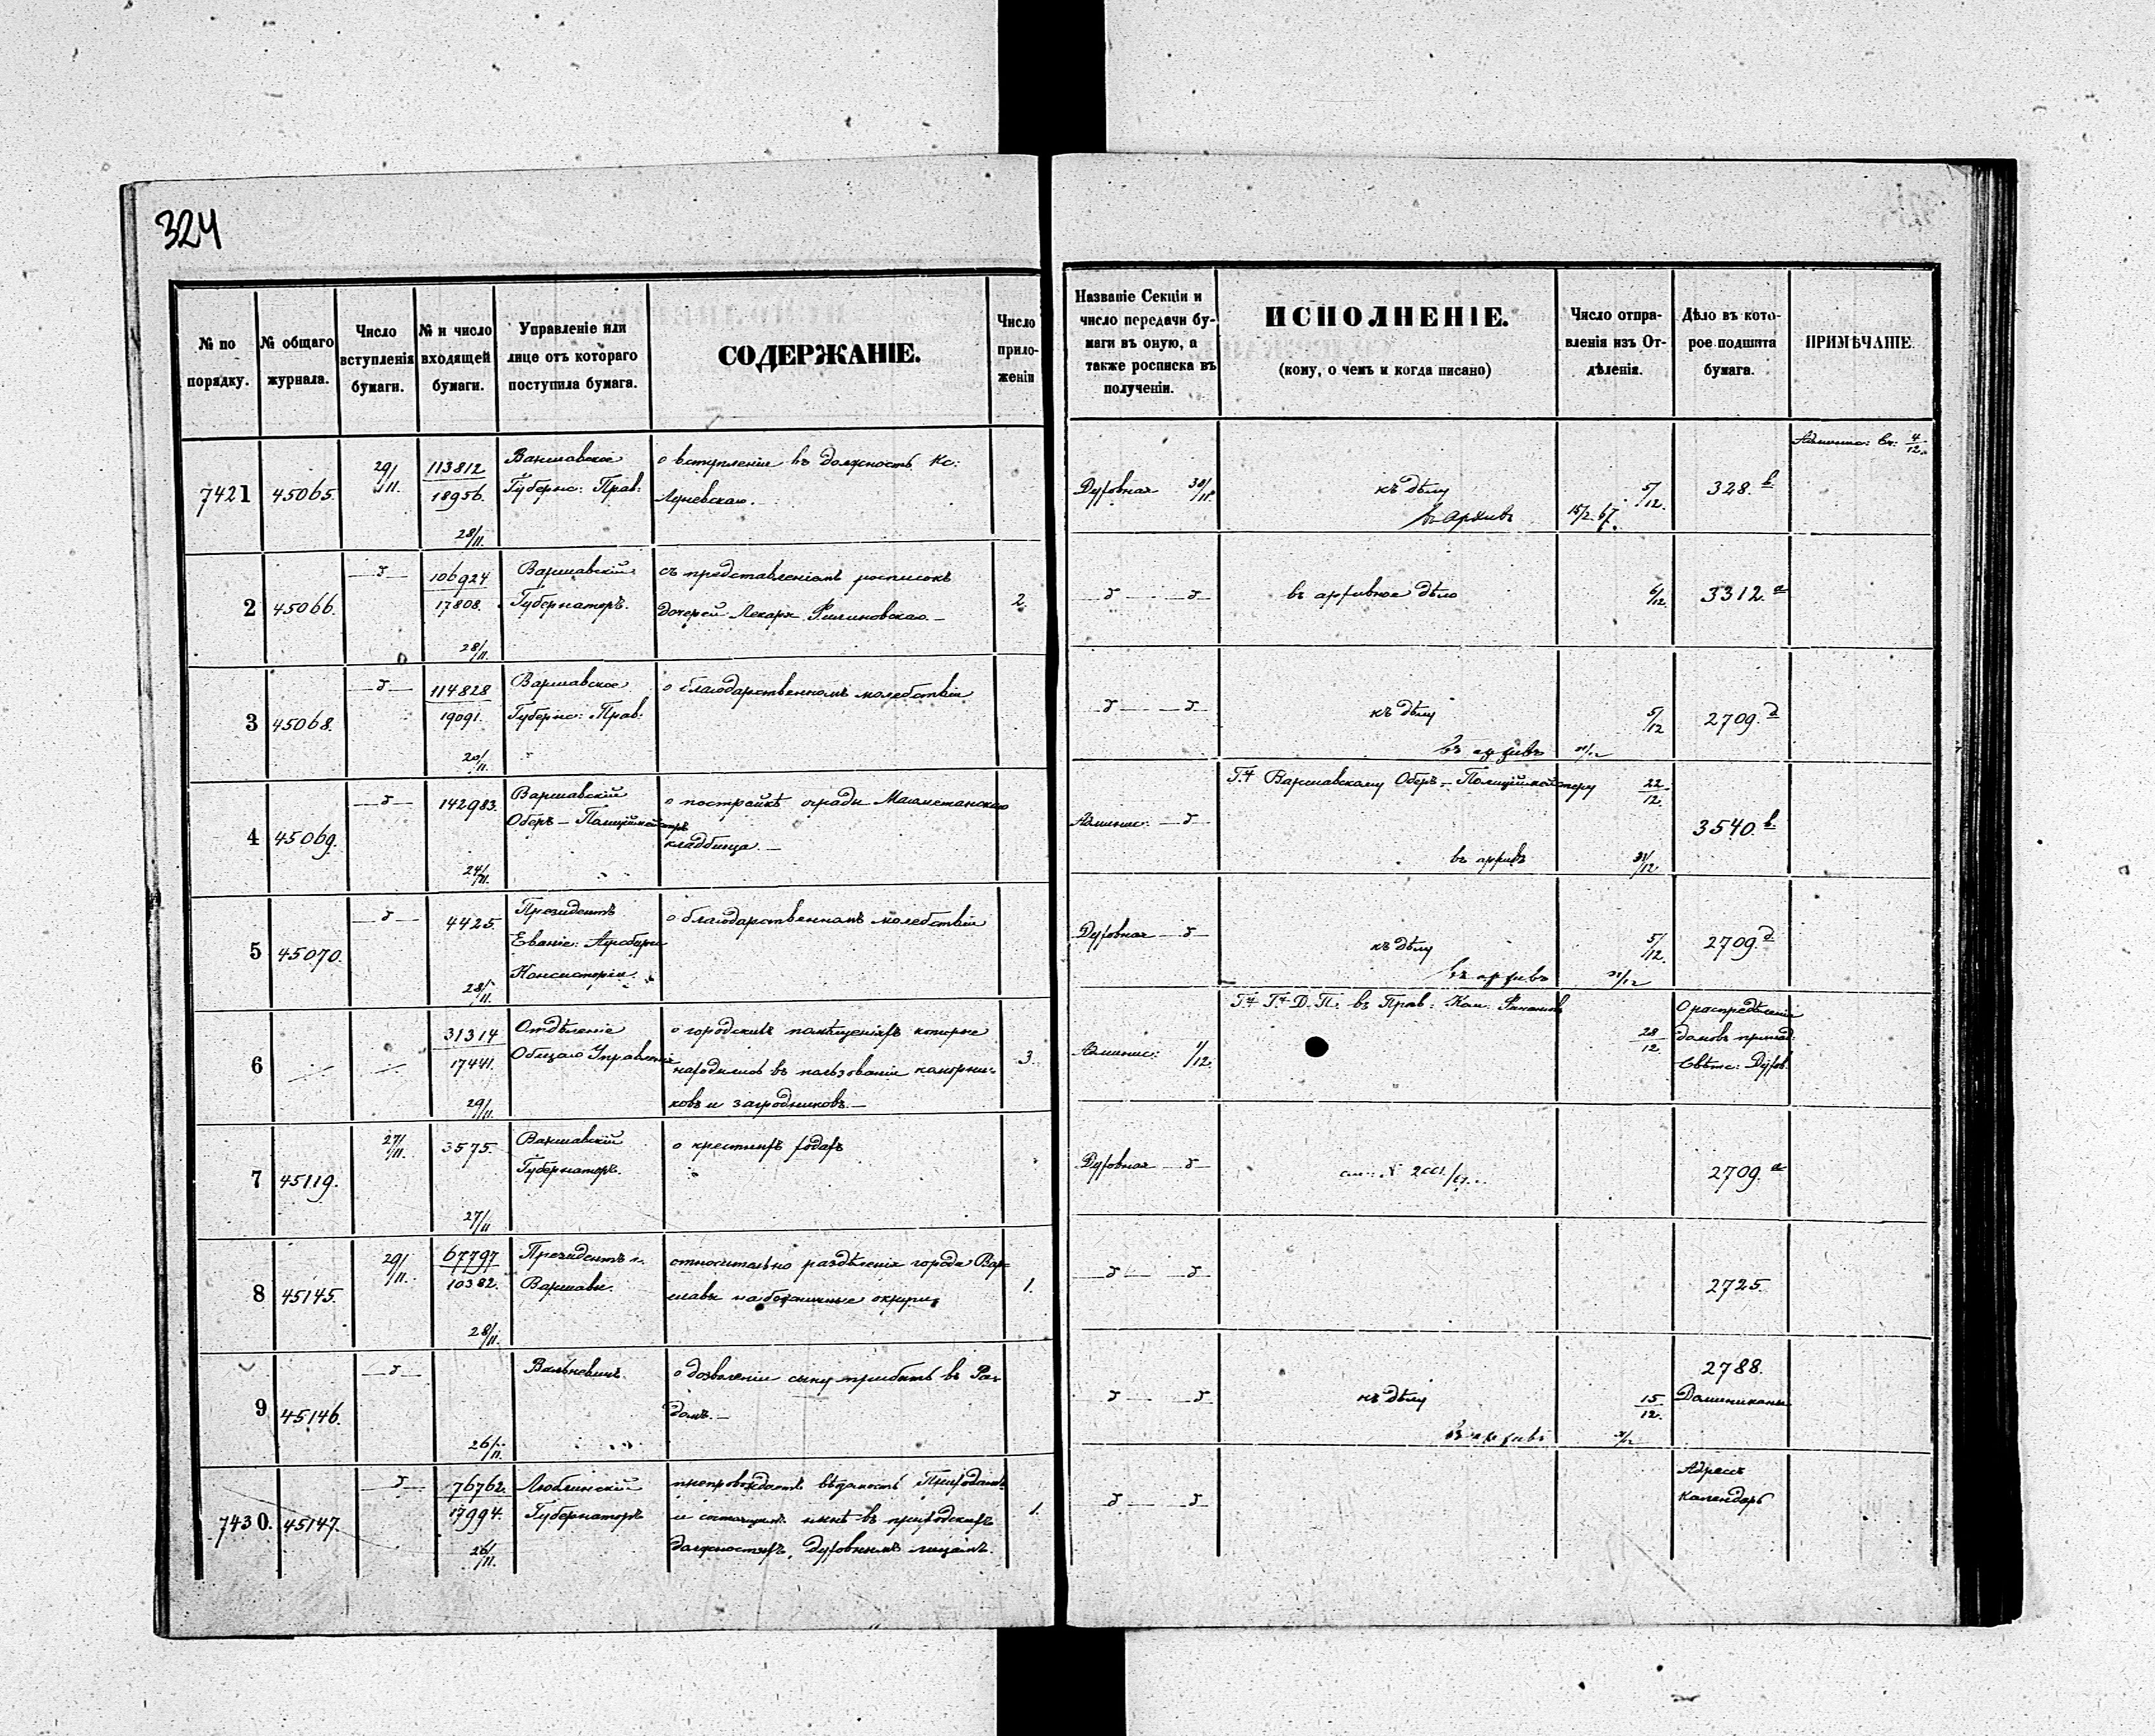 324
№ по порядку.
№ общаго журнала.
Число вступленія бумаги.
№ и число входящей бумаги.
Управленіе или лице отъ котораго поступила бумага.
СОДЕРЖАНІЕ.
Число приложеній
Названіе Секціи и число передачи бумаги въ оную, а также росписка въ полученіи.
ИСПОЛНЕНІЕ.
(кому, о чемъ и когда писано)
Число отправленія изъ Отдѣленія.
Дѣло въ которое подшита бумага.
ПРИМѢЧАНІЕ.
7421 45065. 29/11. 113812 18956. 28/11.
Варшавское
Губернс: Прав:
о вступленіи въ должность Кс:
Духовная 30/11.
къ дѣлу 5/12.
въ Архивъ 15/2 67.
328. в
4/12.
2 45066. 106924 17808. 28/11.
Варшавскій
Губернаторъ.
съ представленіемъ росписокъ
дочерей Лекаря
2.
въ архивное дѣло 6/12. 3312. а
3 45068. 114828 19091.
Варшавское
Губернс: Прав:
о благодарственномъ молебствіи
къ дѣлу 5/12 2709. д
въ архивъ
4 45069. 142983. 24/11.
Варшавскій
Оберъ-Полиціймейстеръ
о постройкѣ ограды Магометанскаго
кладбища.
Админис:
Варшавскому Оберъ-Полиціймейстеру 22/12. 3540. в
въ архивъ 31/12
5 45070. 4425. 28/11.
Президентъ
Консисторіи.
о благодарственномъ молебствіи
Духовная
къ дѣлу 5/12. 2709. д
въ архивъ
6 31314 17441. 29/11.
Отдѣленіе
Общаго Управленія
о городскихъ помѣщеніяхъ которые
въ пользованіи коморни-
ковъ и загродниковъ.
3.
Админис: 1/12.
въ Прав: Ком. Финансовъ 28/12.
О распредѣленіи
домовъ принад:
Свѣтс: Духов.
7 45119. 27/11. 3575. 27/11
Варшавскій
Губернаторъ.
о крестныхъ ходахъ
Духовная
2709. а
8 45145. 29/11. 67797 10382. 28/11.
Президентъ г.
Варшавы.
относительно раздѣленія города Вар-
шавы на божничные округи
1.
2725.
9 45146. 26/11.
о дозволеніи сыну прибыть въ Ра-
домъ.
къ дѣлу 15/12. 2788.
Доминиканы
въ архивъ
7430. 45147. 76762. 17994. 26/11.
Люблинскій
Губернаторъ
препровождаетъ вѣдомость Приходамъ
и состоящимъ нынѣ въ приходскихъ
должностяхъ, духовнымъ лицамъ.
1.
Адресъ
Календарь